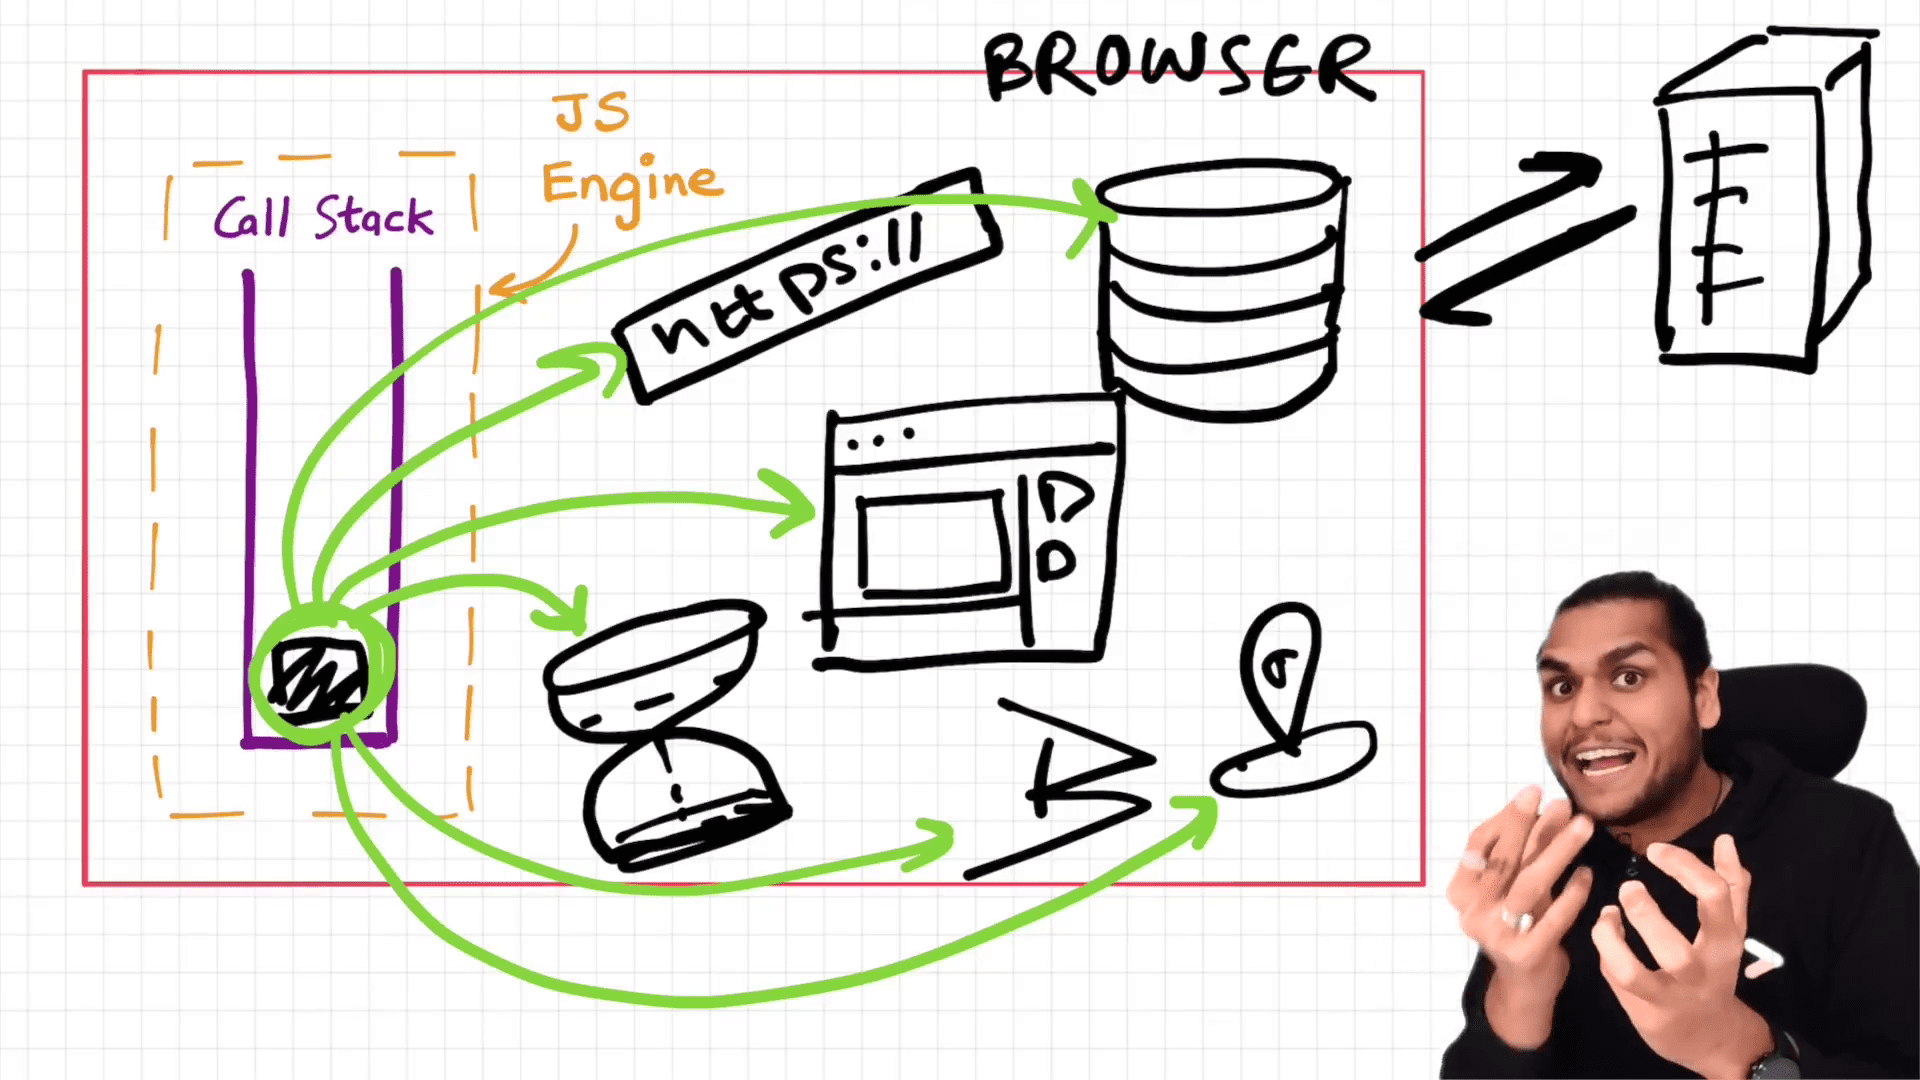 BROWSER
JS
Engine
Call Stack
https://
B